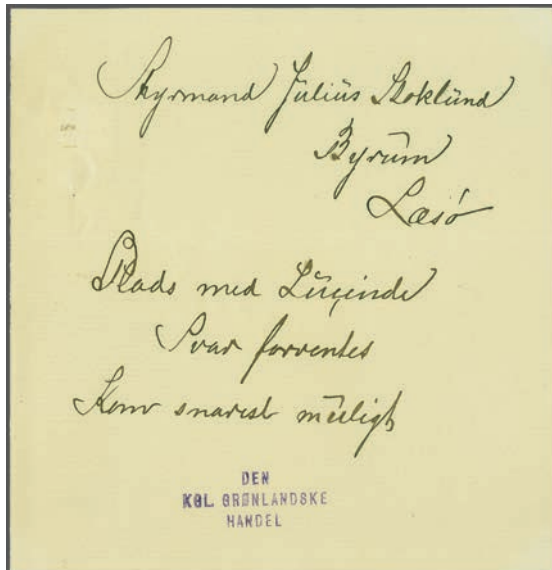 Styrmand Julius Stoklund
Byrum
Læsö
Plads med Lucinde
Svar forventes
Kom snarest muligt
DEN
KGL. GRØNLANDSKE
HANDEL